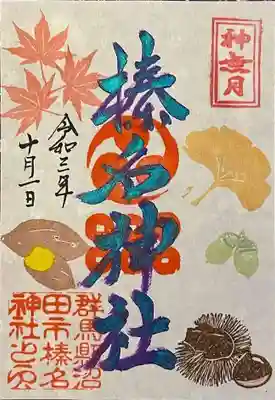 神無月
榛名神社
令和三年
十月一日
群馬県沼
田市榛名
神社之印